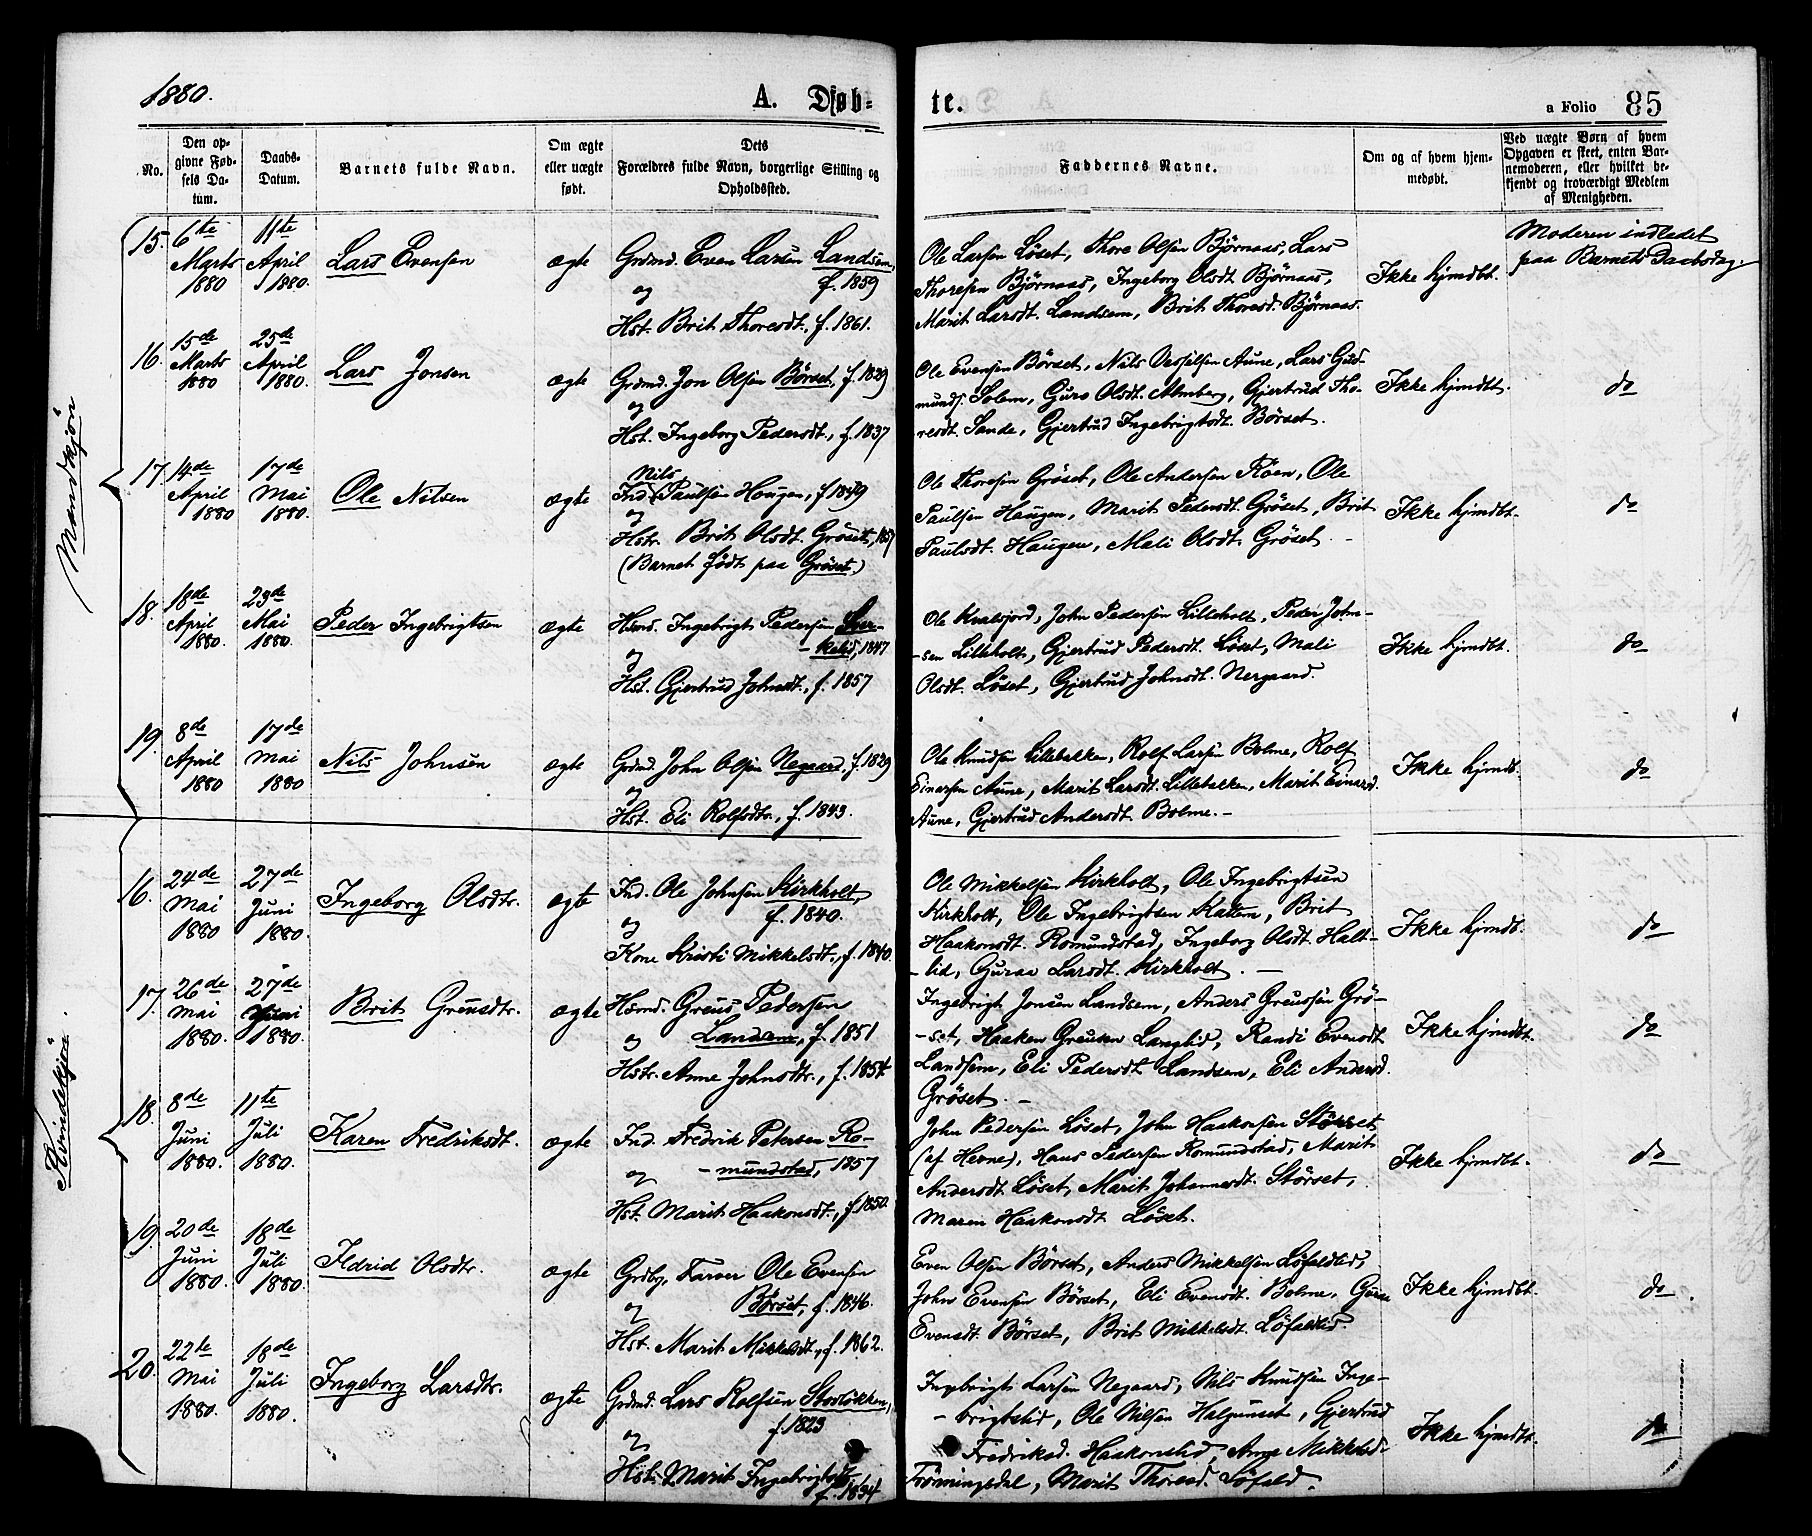 1880.
A. Døb-
te.
a Folio 85
No.
Den op-
givne Fød-
sels Da-
tum.
Daabs-
Datum.
Barnets fulde Navn.
Om ægte
eller uægte
født.
Dets
Forældres fulde Navn, borgerlige Stilling og
Opholdssted.
Faddernes Navne.
Om og af hvem hjem-
medøbt.
Ved uægte Børn af hvem
Opgaven er skeet, enten Bar-
nemoderen, eller hvilket be-
kjendt og troværdigt Medlem
af Menigheden.
Mandkjön
15.
6te
Marts
1880
11te
April
1880.
Lars Evensen
ægte
Grdmd. Even Larsen Landsem,
f. 1859
og
Hst. Brit Thoresdt., f. 1861.
Ole Larsen Löset, Thore Olsen Björnaas, Lars
Thoresen Björnaas, Ingeborg Olsdt. Björnaas,
Marit Larsdt. Landsem, Brit Thoresd. Björnaas.
Ikke hjmdbt.
Moderen indledet
paa Barnets Daabsdag.
16.
15de
Marts
1880
25de
April
1880.
Lars Jonsen
ægte
Grdmd. Jon Olsen Börset, f. 1829
og
Hst. Ingeborg Pedersdt., f. 1837
Ole Evensen Börset, Nils Vesselsen Aune, Lars Gud-
munds. Solem, Guro Olsdt. Almberg, Gjertrud Tho-
resdt. Sande, Gjertrud Ingebrigtsdt. Börset.
Ikke hjmdbt.
do
17
14de
April
1880
17de
Mai
1880.
Ole Nilsen
ægte
Nils
Ind. Paulsen Haugen, f 1849
og
Hstr. Brit Olsdt. Gröset, 1857
(Barnet födt paa Gröset.)
Ole Thoresen Gröset, Ole Andersen Röen, Ole
Paulsen Haugen, Marit Pedersdt. Gröset, Brit
Paulsdt. Haugen, Mali Olsdt. Gröset.
Ikke hjmdbt.
do
18.
18de
April
1880.
23de
Mai
1880.
Peder Ingebrigtsen
ægte
Hsmd. Ingebrigt Pedersen
1847
og
Hst. Gjertrud Johnsdt., f. 1857
Ole Kvalsjord, John Pedersen Lilleholt, Peder John-
-sen Lilleholt, Gjertrud Pedersdt. Löset, Mali
Olsdt. Löset, Gjertrud Johnsdt. Nergaard.
Ikke hjmdbt.
do
19.
8de
April
1880
17de
Mai
1880
Nils Johnsen
ægte
Grdmd. John Olsen Negaard, f. 1829
og
Hst. Eli Rolfsdtr., f. 1843.
Ole Knudsen Lillebakken, Rolf Larsen Bolme, Rolf
Einarsen Aune, Marit Larsdt. Lillebakken, Marit Einarsd.
Aune, Gjertrud Andersdt. Bolme.-
Ikke hjmdb.
do
Kvindekjön.
16.
24de
Mai
1880
27de
Juni
1880.
Ingeborg Olsdtr.
ægte
Ind. Ole Johnsen Kirkholt,
f. 1840.
og
Kone Kristi Mikkelsdt., f. 1840.
Ole Mikkelsen Kirkholt, Ole Ingebrigtsen
Kirkholt, Ole Ingebrigtsen Kattem, Brit
Haakonsdt. Romundstad, Ingeborg Olsdt. Halt-
-lid, Gurae Larsdt. Kirkholt. -
Ikke hjmdb.
do
17.
26de
Mai
1880.
27de
Juni
1880.
Brit Greusdtr.
ægte
Hsmd. Greus Pedersen
Landsem, f. 1851
og
Hstr. Anne Johnsdtr., f. 1854
Ingebrigt Jonsen Landsem, Anders Greussen Grö-
-set, Haaken Greusen Langlid, Randi Evensdt
Landsem, Eli Pedersdt. Landsem, Eli Andersd.
Gröset. -
Ikke hjmdbt.
do
18.
8de
Juni
1880.
11te
Juli
1880.
Karen Fredriksdt.
ægte
Ind. Fredrik Petersen Ro-
-mundstad, 1857
og
Hst. Marit Haakonsdt., f. 1850.
John Pedersen Löset, John Haakonsen Störset
(af Hevne), Hans Pedersen Romundstad, Marit
Andersdt. Löset, Marit Johannesdt. Störset,
Maren Haakonsdt. Löset.
Ikke hjmdbt.
do
19.
20de
Juni
1880.
18de
Juli
1880.
Ildrid Olsdtr.
ægte
Grdbr. Farver Ole Evensen
Börset, f. 1846.
og
Hst. Marit Mikkelsdt., f. 1862.
Even Olsen Börset, Anders Mikkelsen Löfaldlid,
John Evensen Börset, Eli Evensdt. Bolme, Guroe
Evensdt. Börset, Brit Mikkelsdt. Löfaldlid.
Ikke hjmdbt.
do.
20.
22te
Mai
1880.
18de
Juli
1880.
Ingeborg Larsdtr.
ægte
Grdmd. Lars Rolfsen Storlökken,
f. 1823
og
Hst. Marit Ingebrigtsdt.
f. 1834
Ingebrigt Larsen Negaard, Nils Knudsen Inge-
-brigtslid, Ole Nilsen Halgunset, Gjertrud
Fredriksd. Haakonslid, Anne Mikkelsd.
Förmingsdal, Marit Thoresd. Löfald.
Ikke hjmdbt.
do